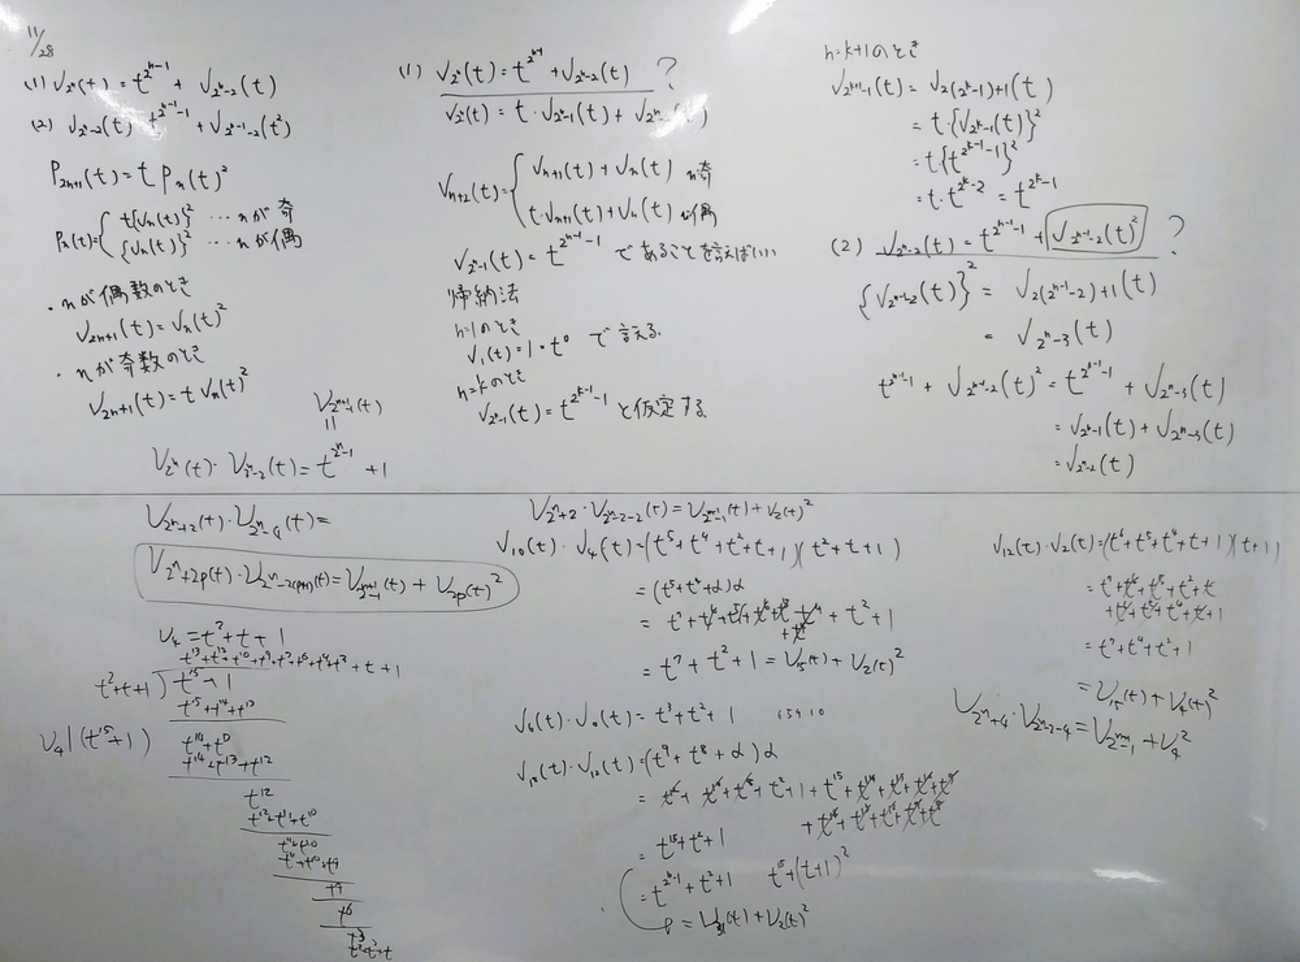 11/28
(1) V_{2^n}(t) = t^{2^{n-1}} + V_{2^n-2}(t)
(2) V_{2^n-2}(t) = t^{2^{n-1}-1} + V_{2^{n-1}-2}(t^2)
P_{2n+1}(t) = t P_n(t)^2
P_n(t) = { t{V_n(t)}^2 … nが奇
{V_n(t)}^2 … nが偶
・nが偶数のとき
V_{2n+1}(t) = V_n(t)^2
・nが奇数のとき
V_{2n+1}(t) = t V_n(t)^2
V_{2^{n+1}-1}(t)
||
V_{2^n}(t)・V_{2^n-2}(t) = t^{2^n-1} + 1
(1) V_{2^n}(t) = t^{2^{n-1}} + V_{2^n-2}(t) ?
V_{2^n}(t) = t・V_{2^n-1}(t) + V_{2^n-2}(t)
V_{n+2}(t) = { V_{n+1}(t) + V_n(t) n:奇
t・V_{n+1}(t) + V_n(t) n:偶
V_{2^n-1}(t) = t^{2^{n-1}-1} であることを言えばいい
帰納法
n=1のとき
V_1(t) = 1 = t^0 で言える.
n=kのとき
V_{2^k-1}(t) = t^{2^{k-1}-1} と仮定する
n=k+1のとき
V_{2^{k+1}-1}(t) = V_{2(2^k-1)+1}(t)
= t・{V_{2^k-1}(t)}^2
= t{t^{2^{k-1}-1}}^2
= t・t^{2^k-2} = t^{2^k-1}
(2) V_{2^n-2}(t) = t^{2^{n-1}-1} + V_{2^{n-1}-2}(t)^2 ?
{V_{2^{n-1}-2}(t)}^2 = V_{2(2^{n-1}-2)+1}(t)
= V_{2^n-3}(t)
t^{2^{n-1}-1} + V_{2^{n-1}-2}(t)^2 = t^{2^{n-1}-1} + V_{2^n-3}(t)
= V_{2^n-1}(t) + V_{2^n-3}(t)
= V_{2^n-2}(t)
V_{2^n+2}(t)・V_{2^n-4}(t) =
V_{2^n+2p}(t)・V_{2^n-2(p+1)}(t) = V_{2^{n+1}-1}(t) + V_{2p}(t)^2
V_4 = t^2 + t + 1
t^{13}+t^{12}+t^{10}+t^9+t^7+t^6+t^4+t^3+t+1
t^2+t+1 ) t^{15}+1
t^{15}+t^{14}+t^{13}
V_4 | (t^{15}+1)
t^{14}+t^{13}
t^{14}+t^{13}+t^{12}
t^{12}
t^{12}+t^{11}+t^{10}
t^{11}+t^{10}
t^{11}+t^{10}+t^9
t^9
t^6
t^3
t^3+t^2+t
V_{2^n+2}・V_{2^n-2-2}(t) = V_{2^{n+1}-1}(t) + V_2(t)^2
V_{10}(t)・V_4(t) = (t^5+t^4+t^2+t+1)(t^2+t+1)
= (t^5+t^4+α)α
= t^7+t^6+t^5+t^6+t^5+t^4+t^2+1
+t^4
= t^7+t^2+1 = V_{15}(t) + V_2(t)^2
V_6(t)・V_0(t) = t^3+t^2+1
V_{18}(t)・V_{12}(t) = (t^9+t^8+α)α
= t^{15}+t^2+1
= t^{2^4-1}+t^2+1 t^{15}+(t+1)^2
= V_{31}(t) + V_2(t)^2
V_{12}(t)・V_2(t) = (t^6+t^5+t^4+t+1)(t+1)
= t^7+t^6+t^5+t^2+t
+t^6+t^5+t^4+t+1
= t^7+t^4+t^2+1
= V_{15}(t) + V_4(t)^2
V_{2^n+4}・V_{2^n-2-4} = V_{2^{n+1}-1} + V_4^2